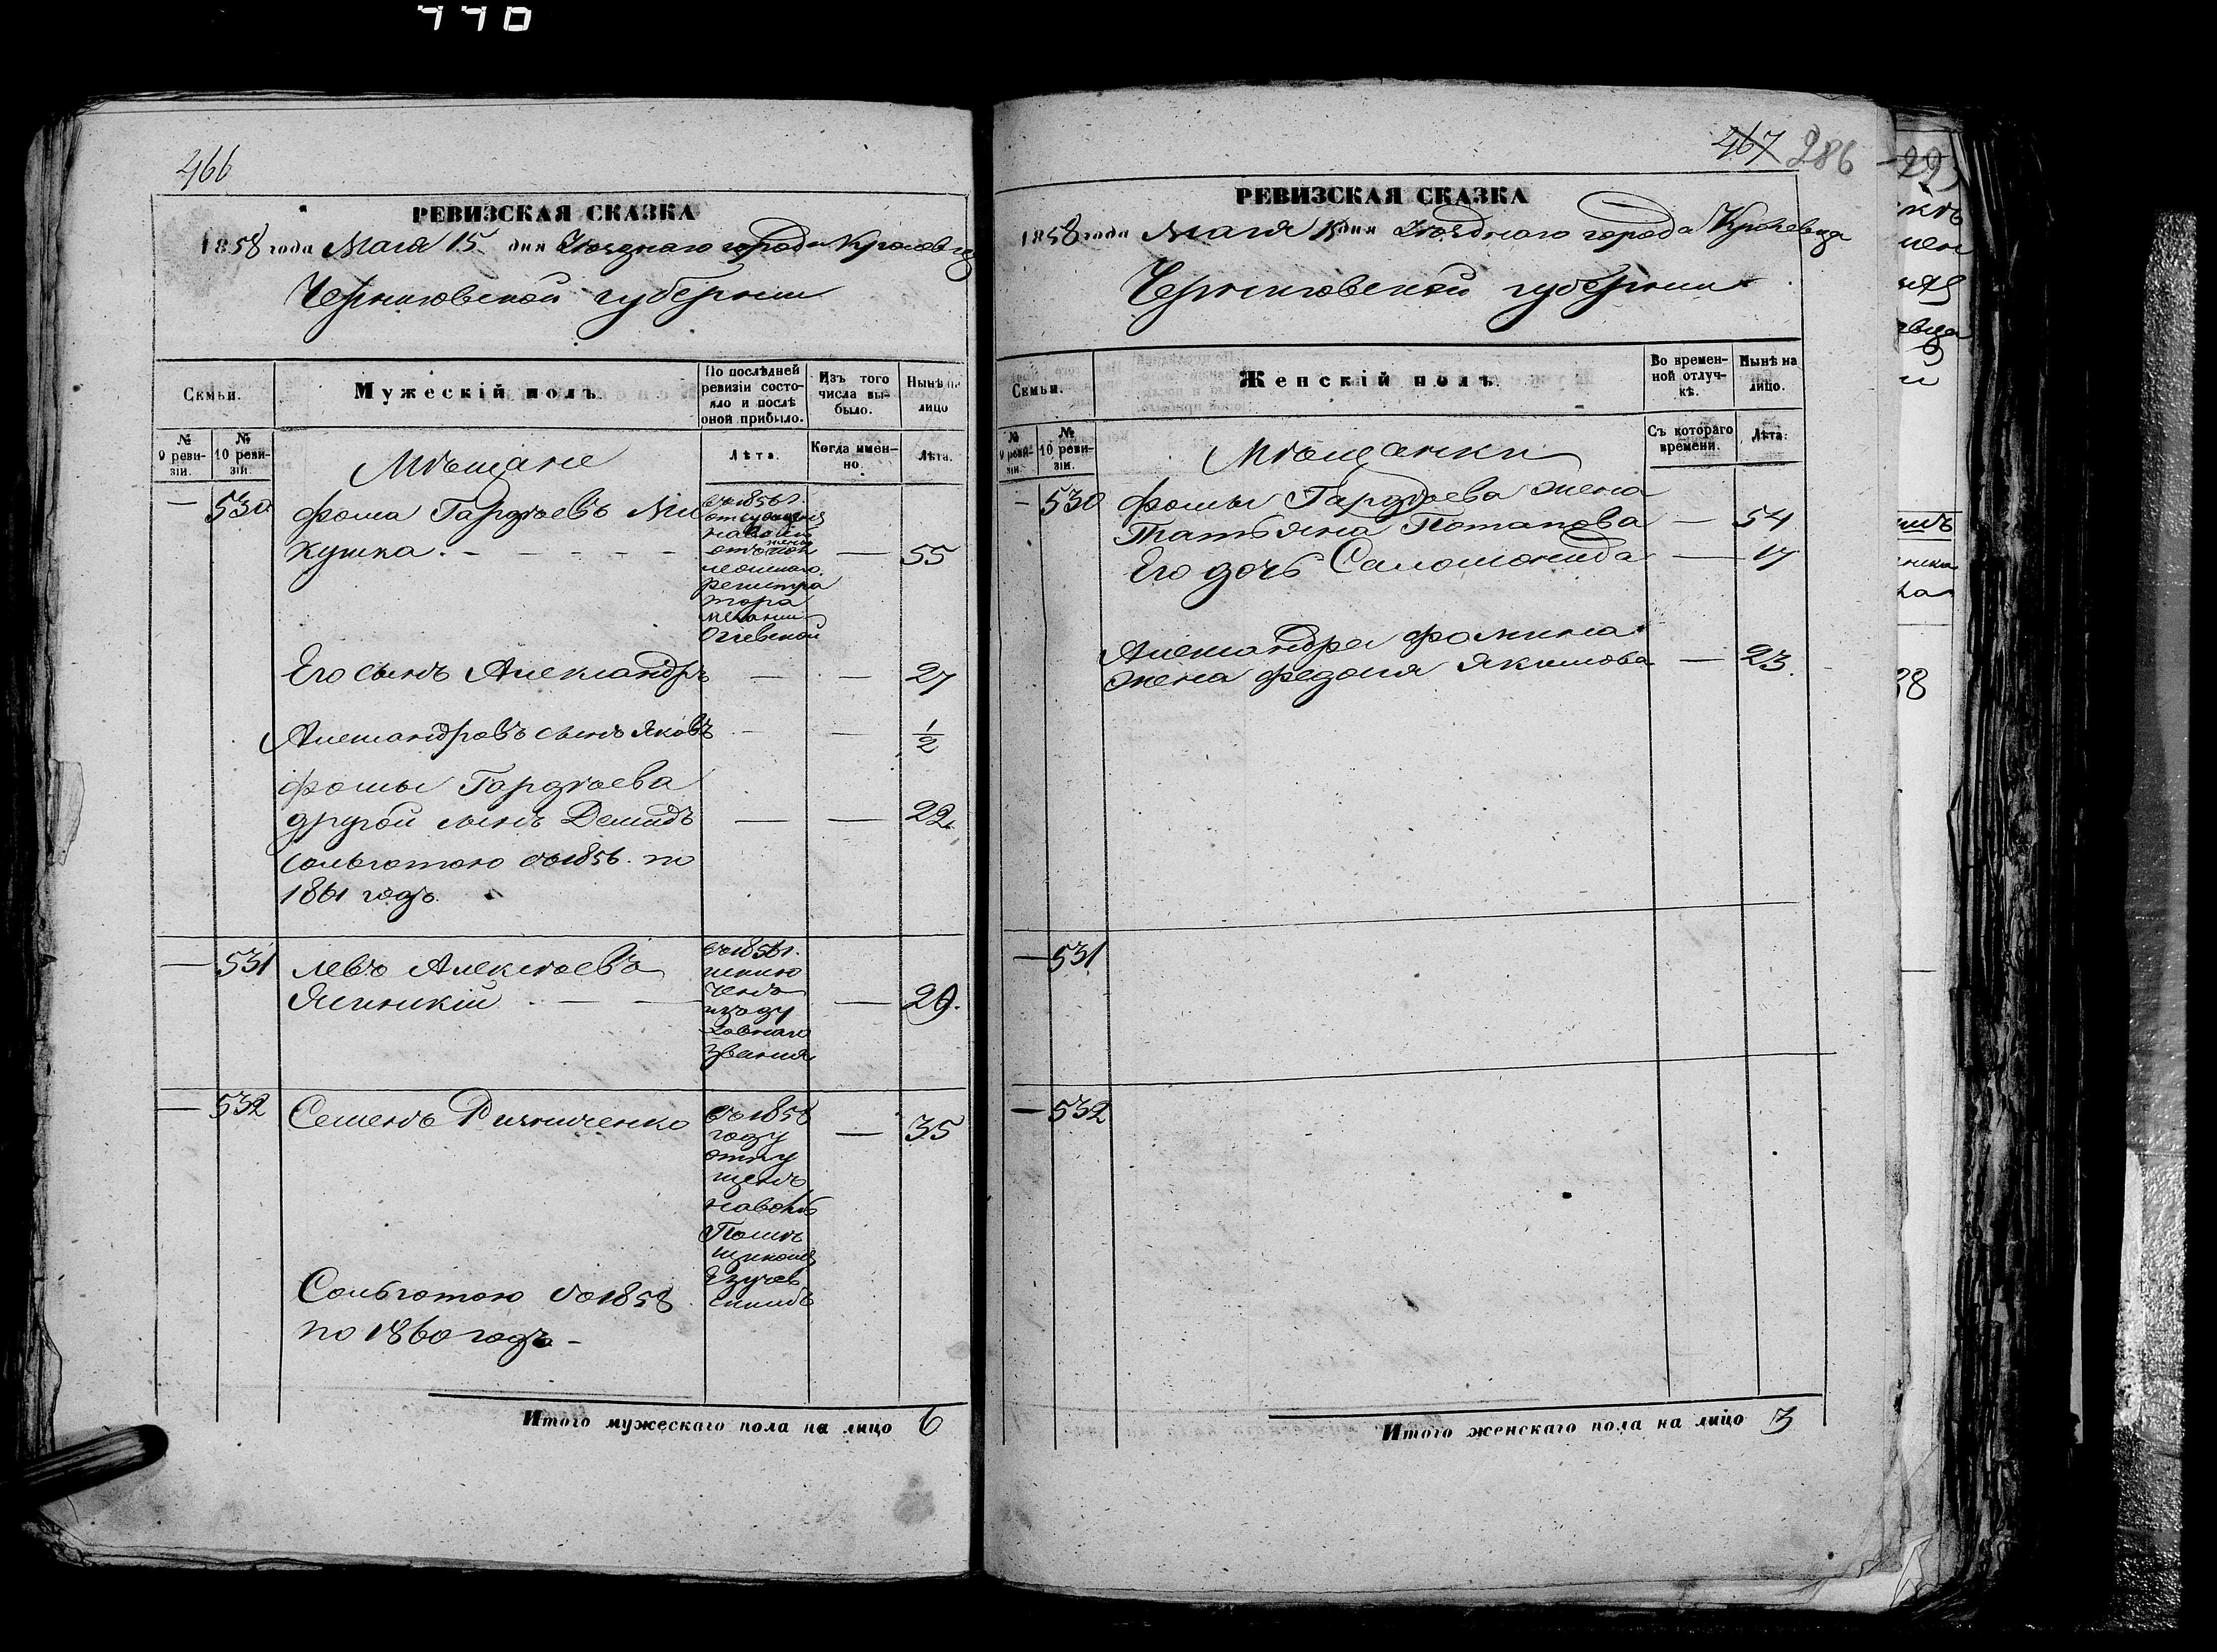 770
466
РЕВИЗСКАЯ СКАЗКА
1858 года Мая 15 дня Уѣзднаго города Кролевца
Черниговской губерніи
Семьи.
Мужескій полъ.
По послѣдней ревизіи состояло и послѣ оной прибыло.
Изъ того числа выбыло.
Нынѣ на лицо
№ 9 ревизіи.
№ 10 ревизіи.
Мѣщане
Лѣта.
Когда именно.
Лѣта.
— 530
Фома Гардѣевъ Ми
кушка. - - - - -
съ 1856 г.
отпущен
на волю
отъ жены
регистра
тора
— 55
Его сынъ Александръ — — 27
Александровъ сынъ Яковъ - — 1/2
Фомы Гардѣева
другой сынъ Демидъ — — 22.
Сольготою съ 1856. по
1861 годъ.
— 531 Левъ Алексѣевъ
съ 1856 г.
исклю
ченъ
изъ ду
ховнаго
званія
— 29.
— 532 Семенъ Ризниченко
съ 1858
году
отпу
щенъ
на волю
Помѣ
щикомъ
— 35
Сольготою съ 1858
по 1860 годъ -
Итого мужескаго пола на лицо 6
467 286
РЕВИЗСКАЯ СКАЗКА
1858 года Мая 15 дня Уѣзднаго города Кролевца
Черниговской губерніи
Семьи.
Женскій полъ.
Во временной отлучкѣ.
Нынѣ на лицо.
№ 9 ревизіи.
№ 10 ревизіи.
Мѣщанки
Съ котораго времени.
Лѣта.
— 530 Фомы Гардѣева жена
Татьяна Потапова — 54
Его дочь Саломонида — 17
Александра Фомина
жена Федосія Якимова — 23.
— 531
— 532
Итого женскаго пола на лицо 3